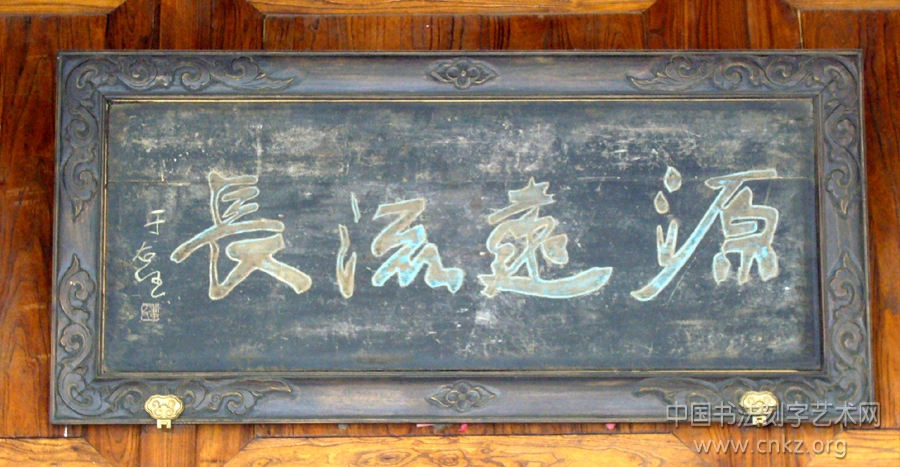 源遠流長
于右任
中国书法刻字艺术网
www.cnkz.org